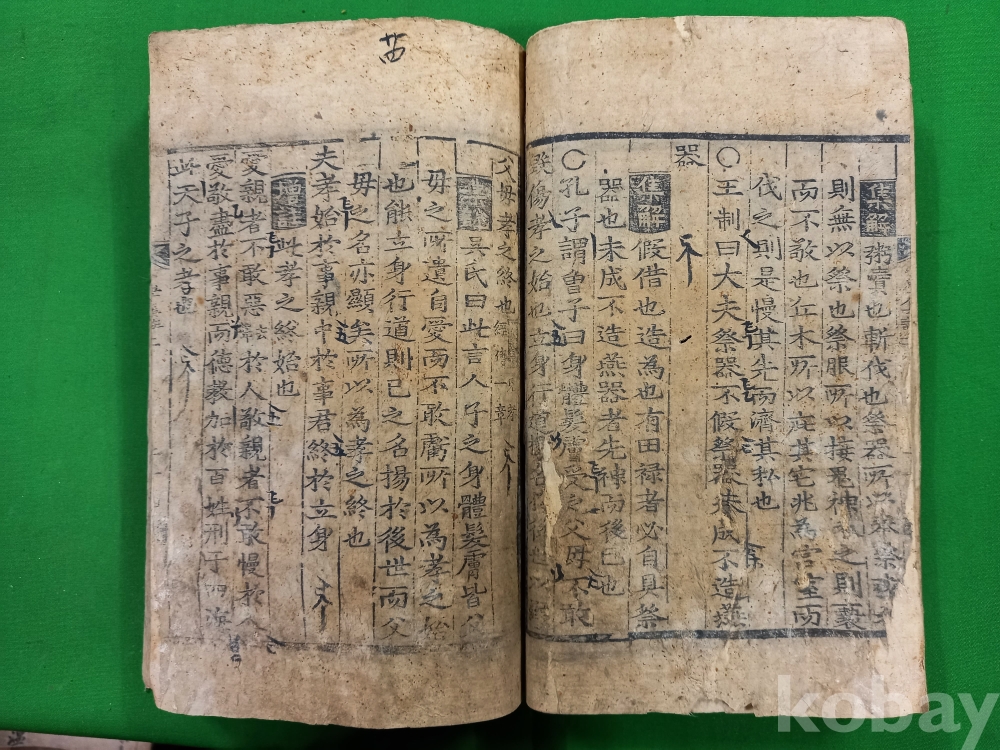 集解 粥賣也斬伐也祭器所以奉祭
則無以祭也祭服所以接鬼神之則褻
而不敬也丘木所以庇其宅兆為宮室而
伐之則是慢其先而濟其私也
○王制曰大夫祭器不假祭器未成不造燕
器
集解 假借也造為也有田禄者必自具祭
器也未成不造燕器者先神而後己也
○孔子謂曾子曰身體髮膚受之父母不敢
毀傷孝之始也立身行道揚名
父母孝之終也
吳氏曰此言人子之身體髮膚皆父
母之所遺自愛而不敢虧所以為孝之始
也能立身行道則己之名揚於後世而父
母之名亦顯矣所以為孝之終也
夫孝始於事親中於事君終於立身
增註 此孝之終始也
愛親者不敢惡於人敬親者不敢慢於人
愛敬盡於事親而德教加於百姓刑于四海
此天子之孝也
kobay